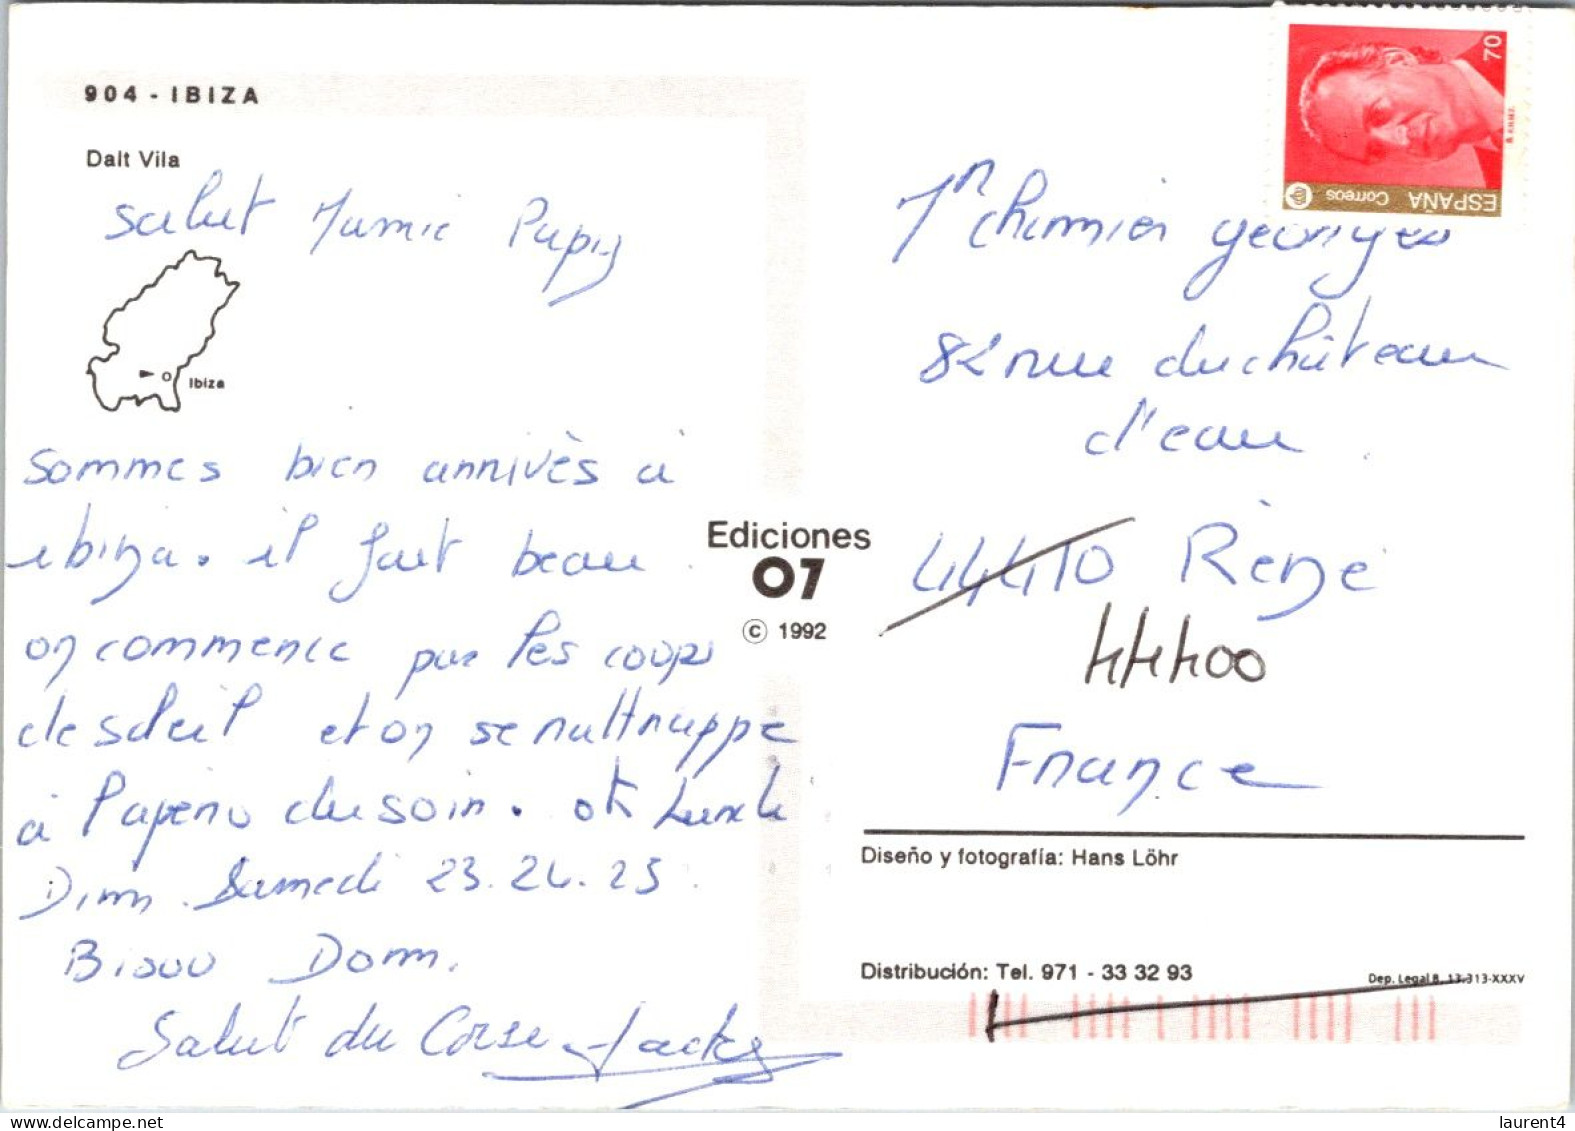 904 - IBIZA
Dalt Vila
Salut Mamie Papy
Ibiza
Sommes bien arrivès à
ibiza. il fait beau
on commence par les coups
de soleil et on se rattrappe
à l'apéro du soir. ok
Dim Samedi 23.24.25.
Bisou Dom.
Salut du Corse Jacky
Ediciones
07
© 1992
70
ESPAÑA Correos
Mr Chimier georges
82 rue du château
d'eau
44410 Rèze
44400
France
Diseño y fotografía: Hans Löhr
Distribución: Tel. 971 - 33 32 93
Dep. Legal B. 13.313-XXXV
laurent4